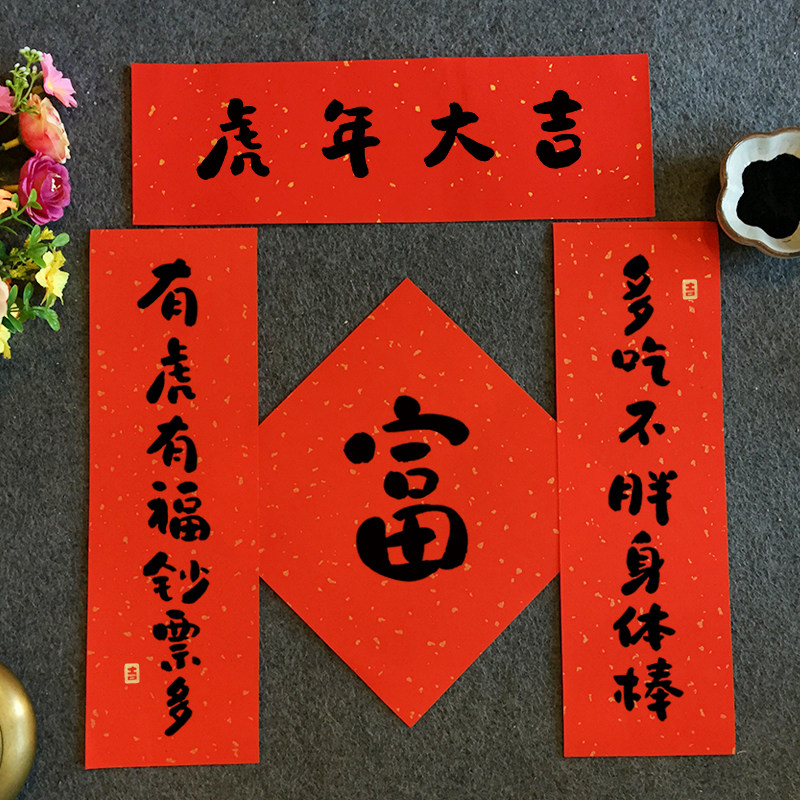 虎年大吉
多吃不胖身体棒
有虎有福钞票多
富
吉
吉